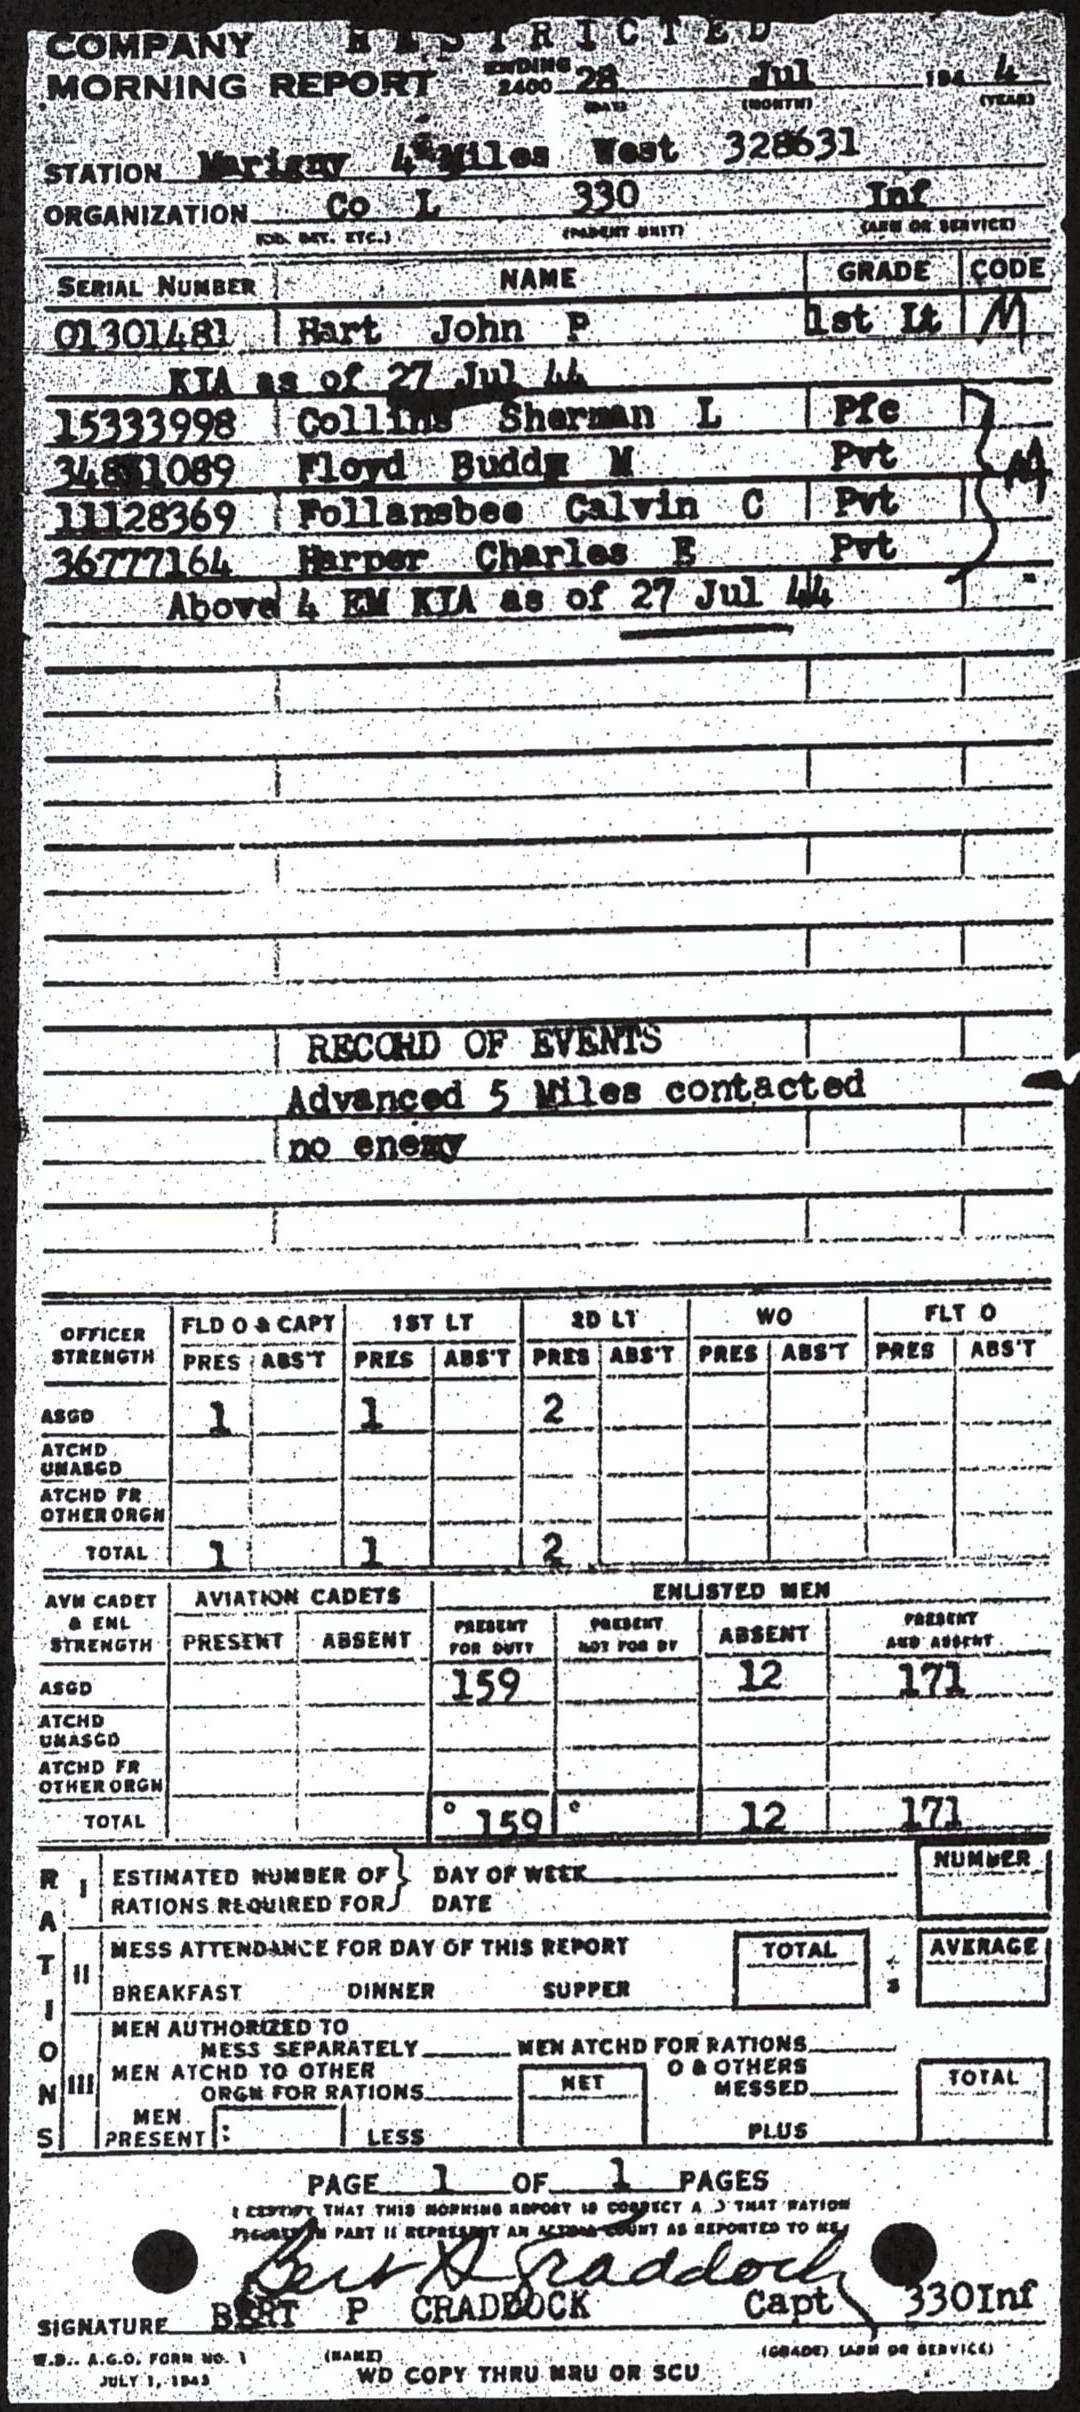 RESTRICTED
COMPANY
MORNING REPORT ENDING 2400 28 Jul 194 4
(DATE) (MONTH) (YEAR)
STATION Marigny 4 Miles West 328631
ORGANIZATION Co L 330 Inf
(CO. DET. ETC.) (PARENT UNIT) (ARM OR SERVICE)
SERIAL NUMBER NAME GRADE CODE
01301481 Hart John P 1st Lt M
KIA as of 27 Jul 44
15333998 Collins Sherman L Pfc
Floyd Buddy M Pvt M
11128369 Follansbee Calvin C Pvt
36777164 Harper Charles E Pvt
Above 4 EM KIA as of 27 Jul 44
RECORD OF EVENTS
Advanced 5 Miles contacted
no enemy
OFFICER STRENGTH FLD O & CAPT 1ST LT 2D LT WO FLT O
PRES ABS'T PRES ABS'T PRES ABS'T PRES ABS'T PRES ABS'T
ASGD 1 1 2
ATCHD UNASGD
ATCHD FR OTHER ORGN
TOTAL 1 1 2
AVN CADET & ENL STRENGTH AVIATION CADETS ENLISTED MEN
PRESENT ABSENT PRESENT FOR DUTY PRESENT NOT FOR DY ABSENT PRESENT AND ABSENT
ASGD 159 12 171
ATCHD UNASGD
ATCHD FR OTHER ORGN
TOTAL 159 12 171
RATIONS
I ESTIMATED NUMBER OF DAY OF WEEK NUMBER
RATIONS REQUIRED FOR DATE
II MESS ATTENDANCE FOR DAY OF THIS REPORT TOTAL AVERAGE
BREAKFAST DINNER SUPPER ÷ 3
III MEN AUTHORIZED TO
MESS SEPARATELY MEN ATCHD FOR RATIONS
MEN ATCHD TO OTHER NET O & OTHERS TOTAL
ORGN FOR RATIONS MESSED
MEN
PRESENT LESS PLUS
PAGE 1 OF 1 PAGES
I CERTIFY THAT THIS MORNING REPORT IS CORRECT THAT RATION
FIGURES IN PART II REPRESENT AN ACTUAL COUNT AS REPORTED TO ME
Craddock
SIGNATURE BERT P CRADDOCK Capt 330Inf
W.D., A.G.O. FORM NO. 1 (NAME) (GRADE) (ARM OR SERVICE)
JULY 1, 1943 WD COPY THRU MRU OR SCU